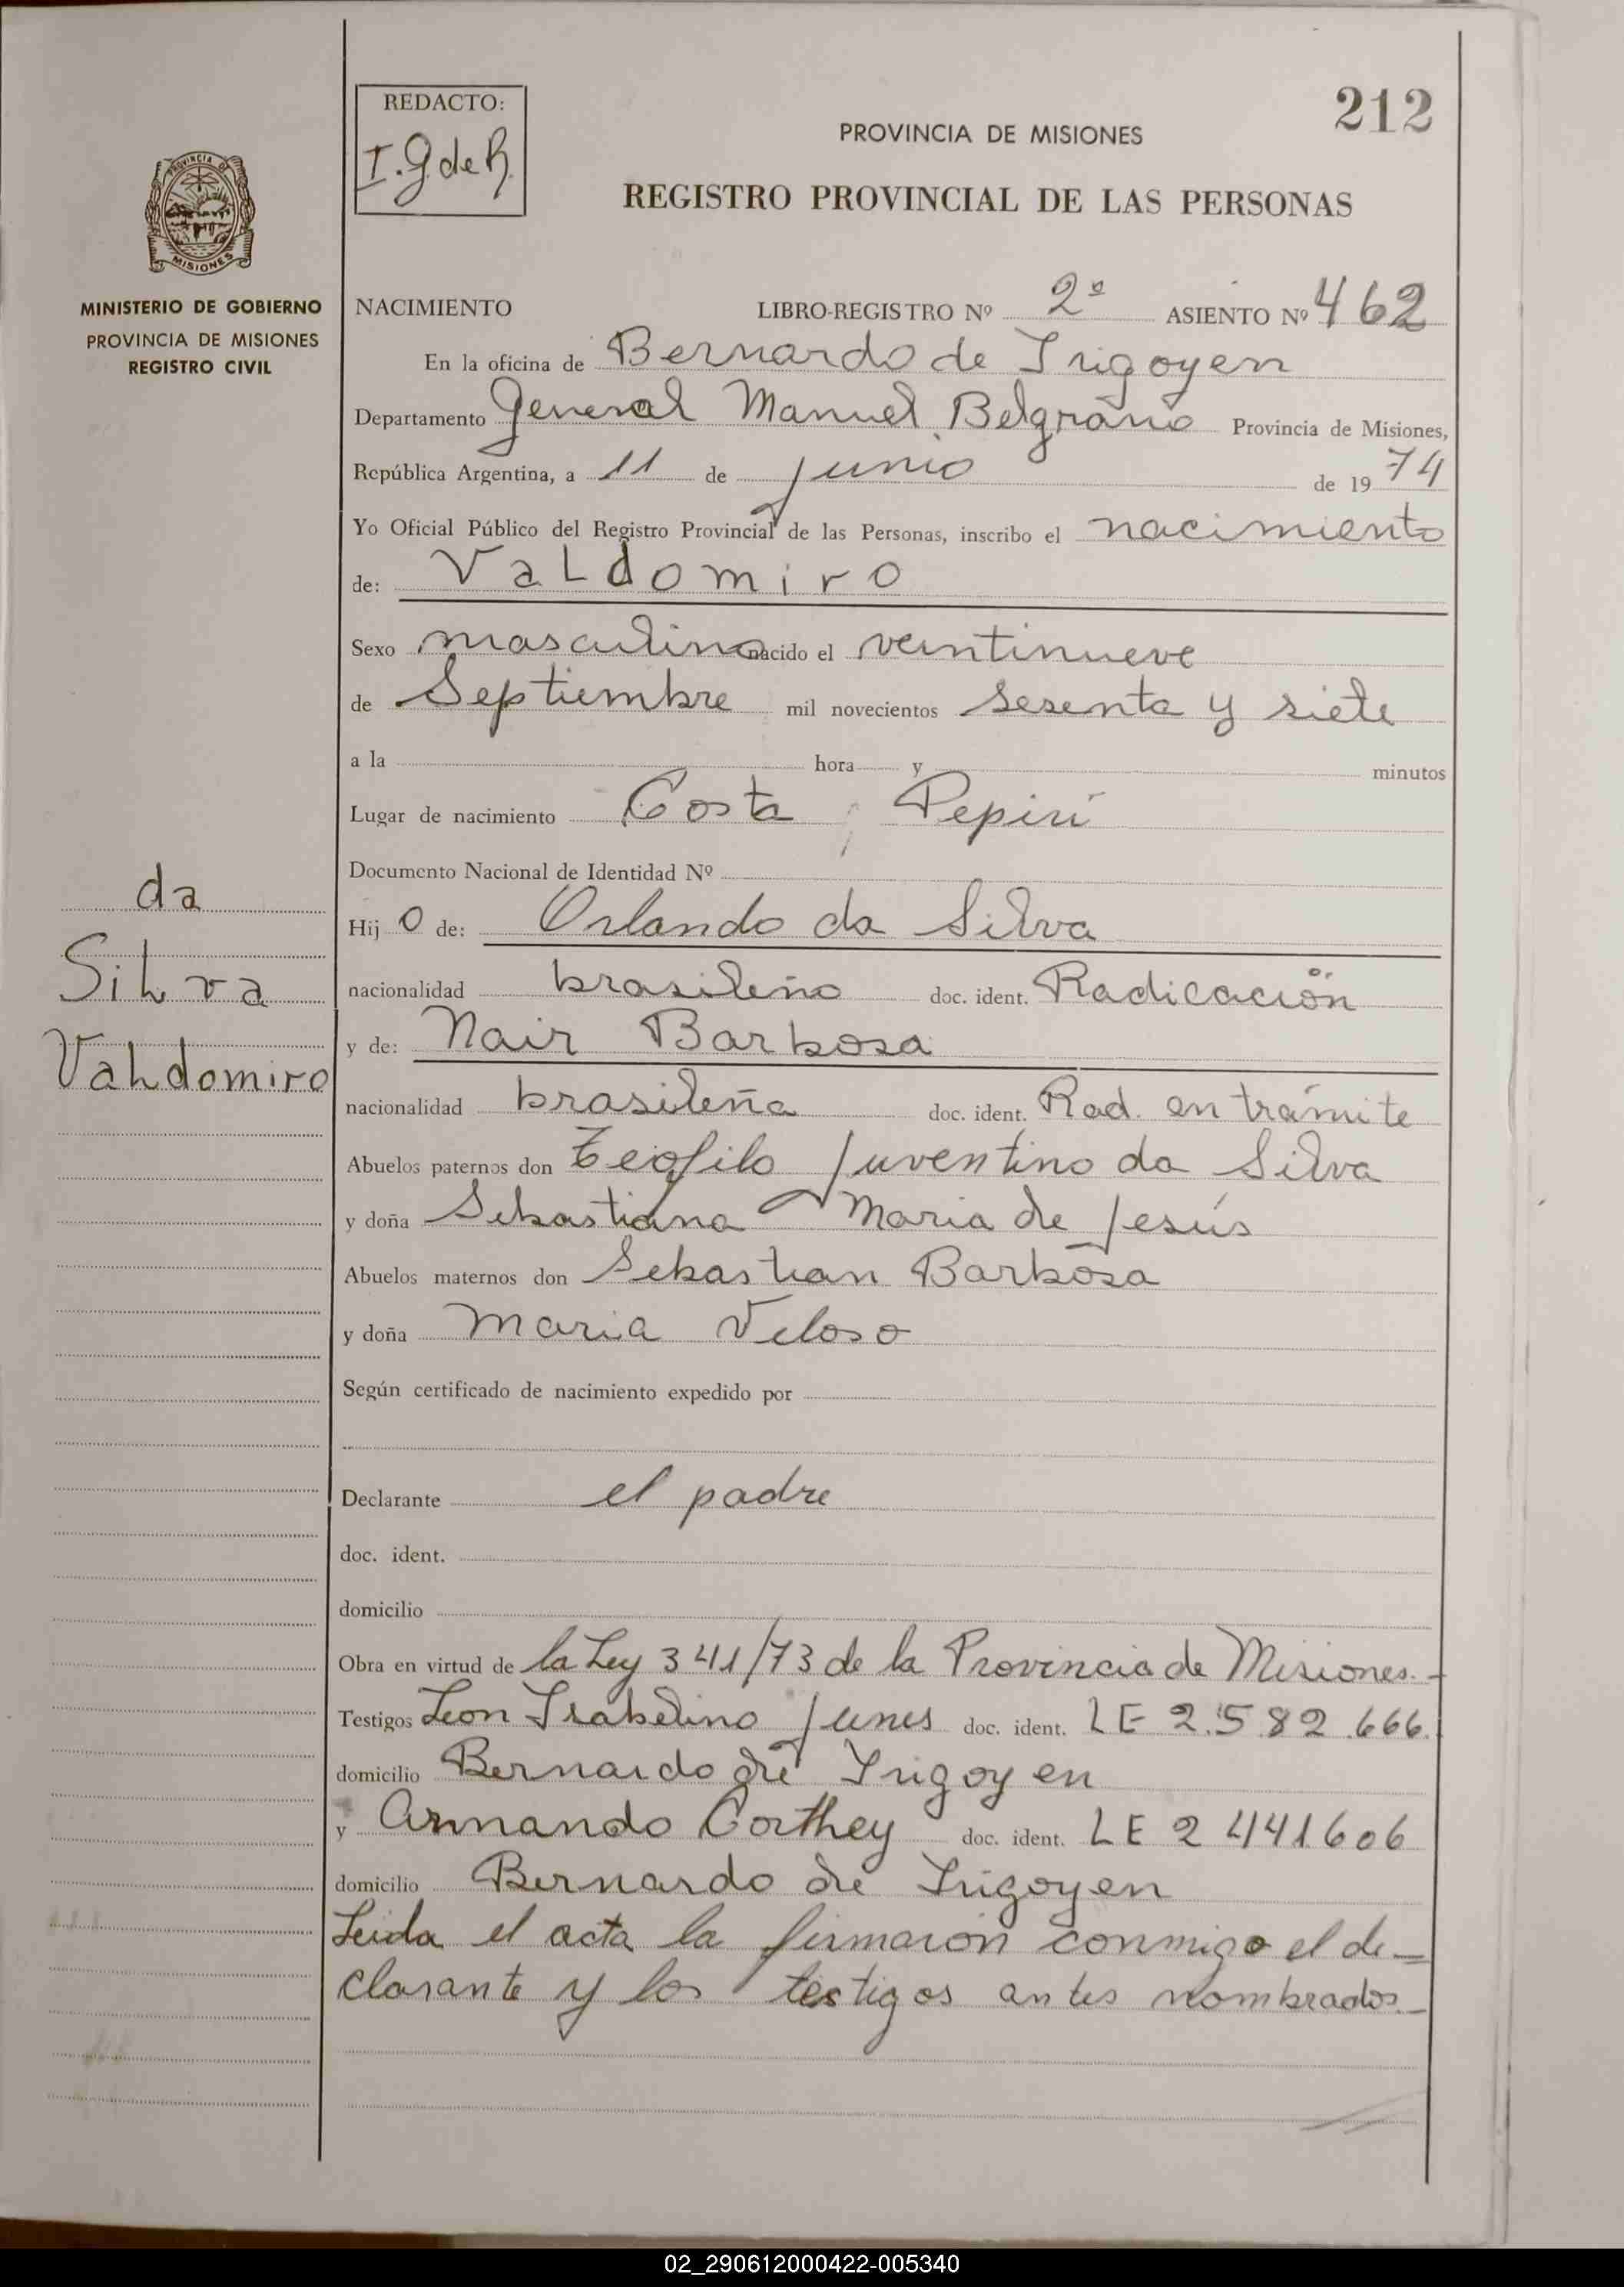 212
REDACTO:
I. G de R.
PROVINCIA DE MISIONES
REGISTRO PROVINCIAL DE LAS PERSONAS
PROVINCIA DE
MISIONES
MINISTERIO DE GOBIERNO
PROVINCIA DE MISIONES
REGISTRO CIVIL
NACIMIENTO LIBRO-REGISTRO Nº 2º ASIENTO Nº 462
En la oficina de Bernardo de Irigoyen
Departamento General Manuel Belgrano Provincia de Misiones,
República Argentina, a 11 de junio de 1974
Yo Oficial Público del Registro Provincial de las Personas, inscribo el nacimiento
de: Valdomiro
Sexo masculino nacido el veintinueve
de Septiembre mil novecientos sesenta y siete
a la hora y minutos
Lugar de nacimiento Costa Pepirí
Documento Nacional de Identidad Nº
da
Silva
Valdomiro
Hijo de: Orlando da Silva
nacionalidad brasileño doc. ident. Radicación
y de: Nair Barbosa
nacionalidad brasileña doc. ident. Rad. en trámite
Abuelos paternos don Teófilo Juventino da Silva
y doña Sebastiana Maria de Jesús
Abuelos maternos don Sebastian Barbosa
y doña Maria Veloso
Según certificado de nacimiento expedido por
Declarante el padre
doc. ident.
domicilio
Obra en virtud de la Ley 341/73 de la Provincia de Misiones.-
Testigos Leon Isabelino Junes doc. ident. LE 2.582.666.
domicilio Bernardo de Irigoyen
y Armando Corthey doc. ident. LE 2441606
domicilio Bernardo de Irigoyen
Leida el acta la firmaron conmigo el de-
clarante y los testigos antes nombrados.-
02_290612000422-005340